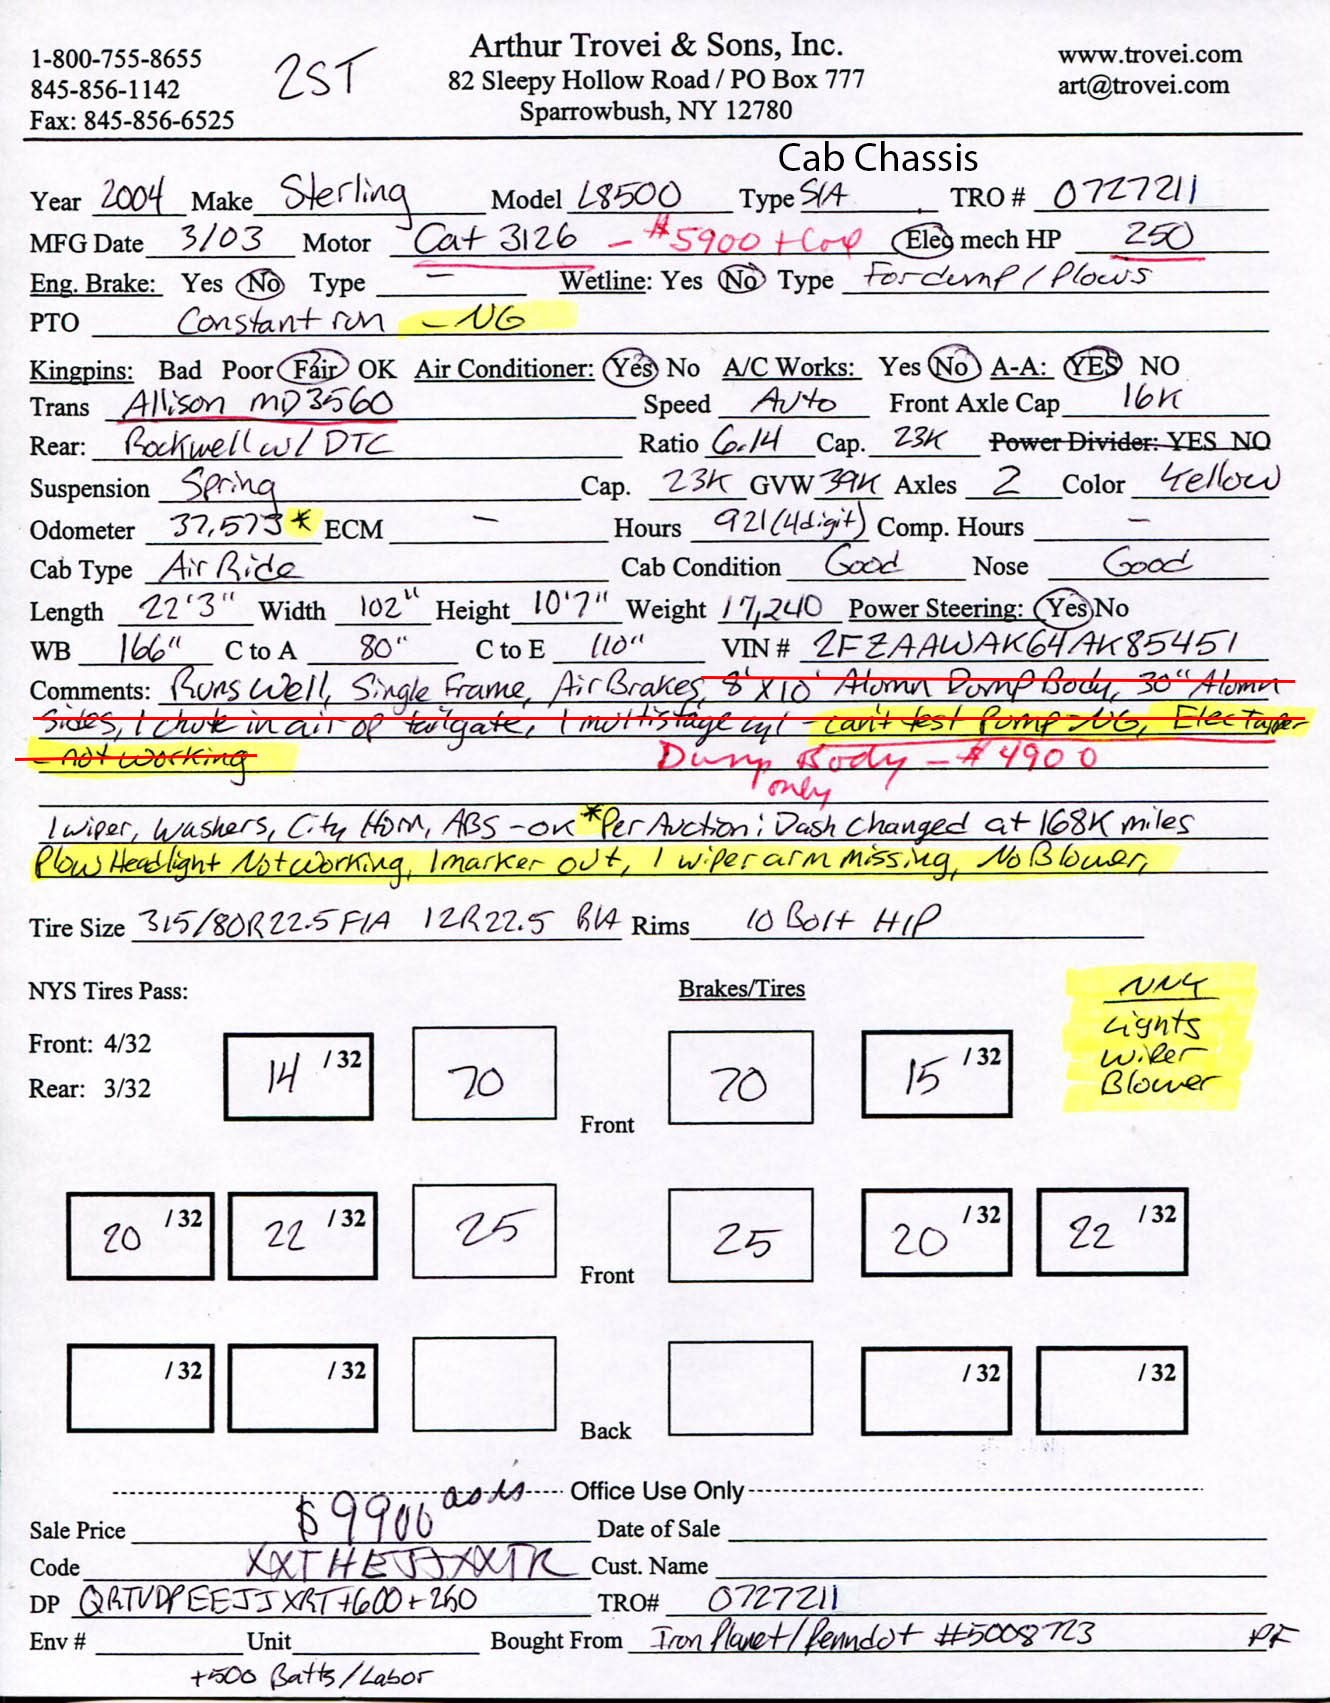 1-800-755-8655
845-856-1142
Fax: 845-856-6525
2ST
Arthur Trovei & Sons, Inc.
82 Sleepy Hollow Road / PO Box 777
Sparrowbush, NY 12780
www.trovei.com
art@trovei.com
Cab Chassis
Year 2004 Make Sterling Model L8500 Type S/A TRO # 0727211
MFG Date 3/03 Motor Cat 3126 - $5900 + Core Elec mech HP 250
Eng. Brake: Yes No Type - Wetline: Yes No Type For dump / Plows
PTO Constant run - NG
Kingpins: Bad Poor Fair OK Air Conditioner: Yes No A/C Works: Yes No A-A: YES NO
Trans Allison MD3560 Speed Auto Front Axle Cap 16K
Rear: Rockwell w/ DTC Ratio 6.14 Cap. 23K Power Divider: YES NO
Suspension Spring Cap. 23K GVW 39K Axles 2 Color Yellow
Odometer 37,573 * ECM - Hours 921 (4 digit) Comp. Hours -
Cab Type Air Ride Cab Condition Good Nose Good
Length 22'3" Width 102" Height 10'7" Weight 17,240 Power Steering: Yes No
WB 166" C to A 80" C to E 110" VIN # 2FZAAWAK64AK85451
Comments: Runs Well, Single Frame, Air Brakes, 8'X10' Alumn Dump Body, 30" Alumn
Sides, 1 chute in air op tailgate, 1 multistage cyl - can't test Pump - NG, Elec Tarper
- not working
Dump Body - $4900
only
1 wiper, Washers, City Horn, ABS - OK *Per Auction: Dash changed at 168K miles
Plow Headlight Not working, 1 marker out, 1 wiper arm missing, No Blower,
Tire Size 315/80R22.5 F/A 12R22.5 R/A Rims 10 Bolt H/P
NYS Tires Pass:
Brakes/Tires
Front: 4/32
Rear: 3/32
14 /32 70 Front 70 15 /32
Lights
Wiper
Blower
20 /32 22 /32 25 Front 25 20 /32 22 /32
/32 /32 Back /32 /32
Office Use Only
Sale Price $9900 as is Date of Sale
Code XXTHEJJXXTR Cust. Name
DP QRTVDPEEJJXRT+600+250 TRO# 0727211
Env # Unit Bought From Iron Planet/Penndot #5008723 PF
+500 Batts/Labor